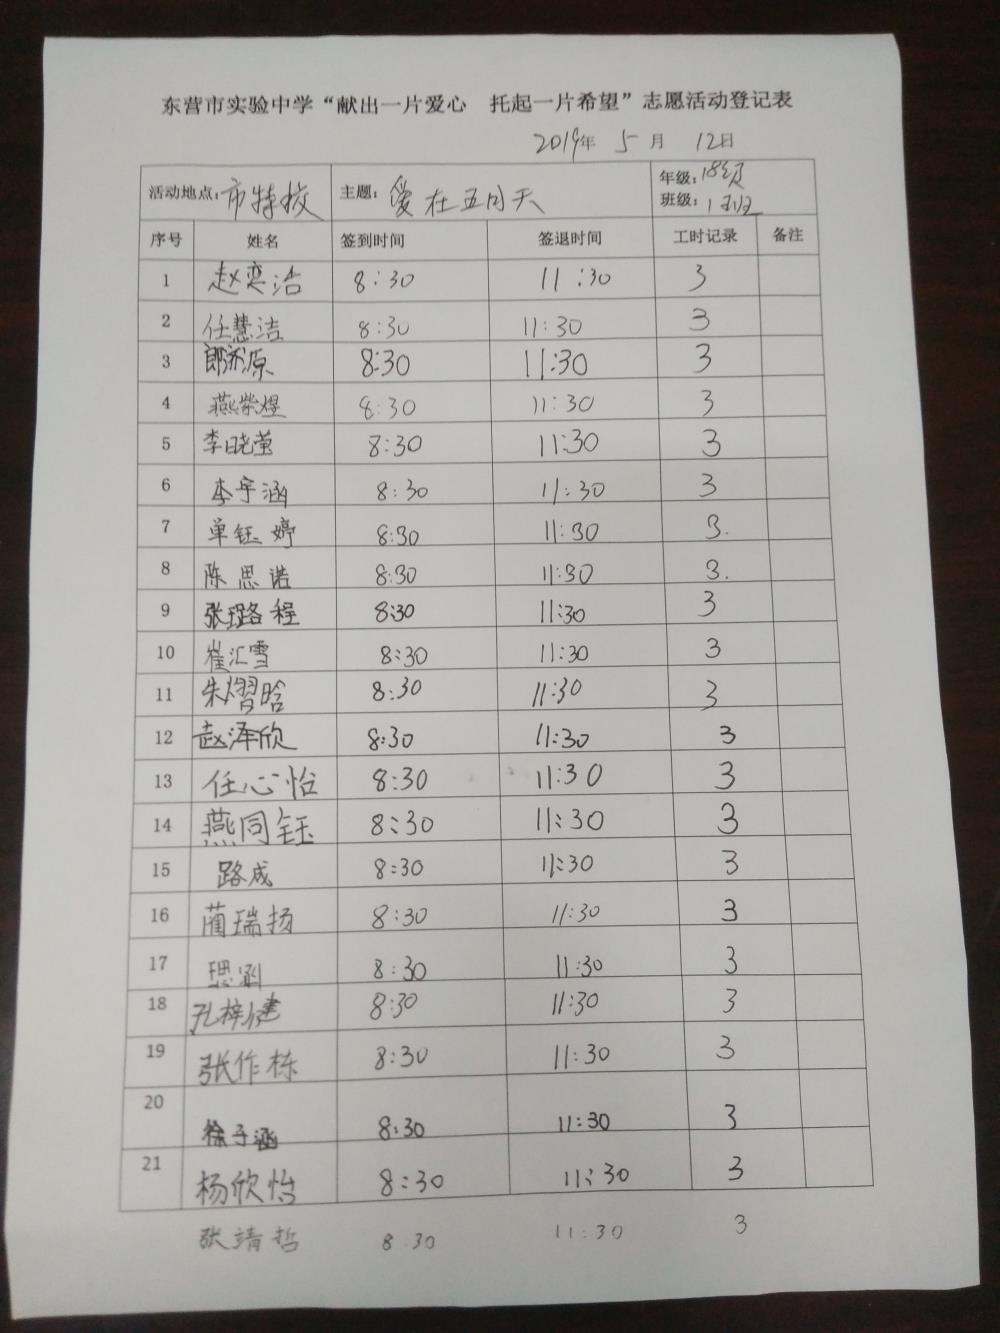 东营市实验中学“献出一片爱心 托起一片希望”志愿活动登记表
2019年 5月 12日
活动地点：市特校 主题：爱在五月天 年级：18级
班级：1班
序号 姓名 签到时间 签退时间 工时记录 备注
1 赵奕洁 8:30 11:30 3
2 任慧洁 8:30 11:30 3
3 原 8:30 11:30 3
4 燕荣煜 8:30 11:30 3
5 李晓莹 8:30 11:30 3
6 李宇涵 8:30 11:30 3
7 单钰婷 8:30 11:30 3.
8 陈思诺 8:30 11:30 3.
9 张璐程 8:30 11:30 3
10 崔汇雪 8:30 11:30 3
11 朱熠晗 8:30 11:30 3
12 赵泽欣 8:30 11:30 3
13 任心怡 8:30 11:30 3
14 燕同钰 8:30 11:30 3
15 路成 8:30 11:30 3
16 蔺瑞扬 8:30 11:30 3
17 8:30 11:30 3
18 孔梓健 8:30 11:30 3
19 张作栋 8:30 11:30 3
20 徐子涵 8:30 11:30 3
21 杨欣怡 8:30 11:30 3
张靖哲 8:30 11:30 3